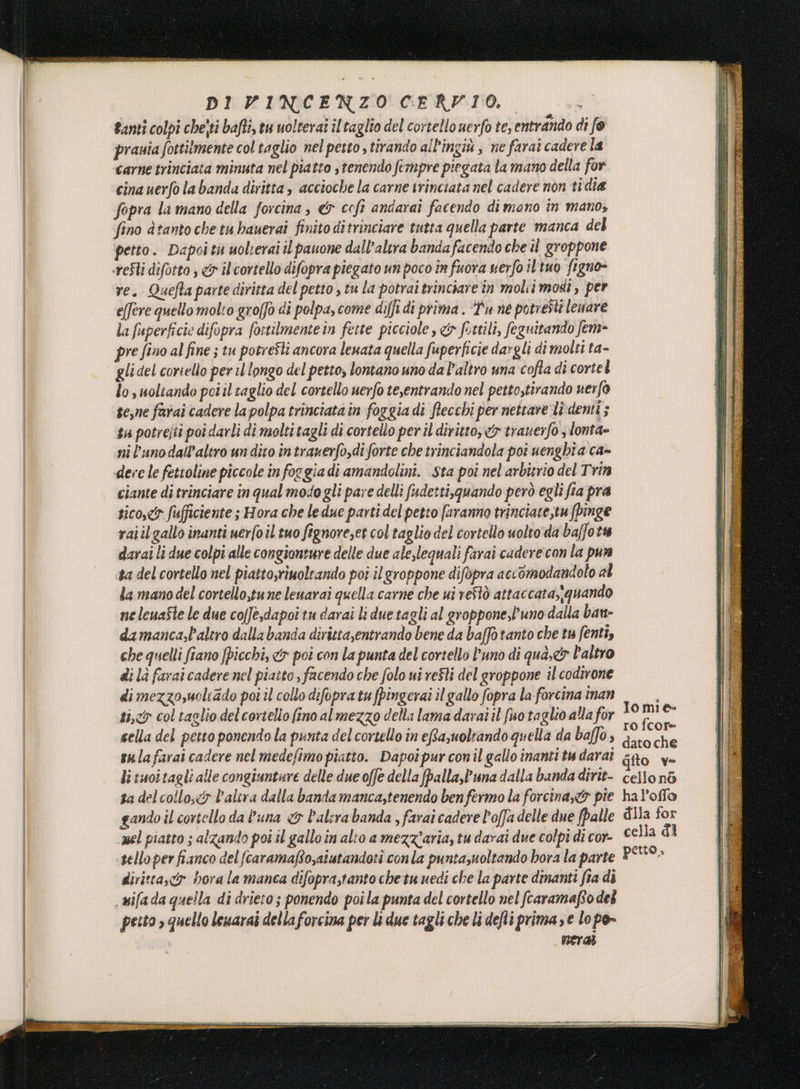 DI VINCENZO CERVIO.
tanti colpi che'ti basti, tu uolterai il taglio del cortello uerso te, entrando di so
prauia sottilmente col taglio nel petto, tirando all'ingiù, ne farai cadere la
carne trinciata minuta nel piatto, tenendo sempre piegata la mano della for
cina uerso la banda diritta, accioche la carne trinciata nel cadere non ti dia
sopra la mano della forcina, & cosi andarai facendo di mano in mano,
fino à tanto che tu hauerai finito di trinciare tutta quella parte manca del
petto. Dapoi tu uolterai il pauone dall'altra banda facendo che il groppone
resti disotto, & il cortello disopra piegato un poco in fuora uerso il tuo signo-
re. Questa parte diritta del petto, tu la potrai trinciare in molti modi, per
essere quello molto grosso di polpa, come dissi di prima. Tu ne potresti leuare
la superficie disopra sottilmente in fette picciole, & sottili, seguitando sem-
pre fino al fine; tu potresti ancora leuata quella superficie dargli di molti ta-
gli del cortello per il longo del petto, lontano uno da l'altro una costa di cortel
lo, uoltando poi il taglio del cortello uerso te, entrando nel petto, tirando uerso
te, ne farai cadere la polpa trinciata in foggia di stecchi per nettare li denti;
tu potresti poi darli di molti tagli di cortello per il diritto, & trauerso, lonta-
ni l'uno dall'altro un dito in trauerso, di sorte che trinciandola poi uenghi a ca-
dere le fettoline piccole in foggia di amandolini. Sta poi nel arbitrio del Trin
ciante di trinciare in qual modo gli pare delli sudetti, quando però egli sia pra
tico, & sufficiente; Hora che le due parti del petto saranno trinciate, tu spinge
rai il gallo inanti uerso il tuo signore, et col taglio del cortello uolto da basso tu
darai li due colpi alle congionture delle due ale, lequali farai cadere con la pun
ta del cortello nel piatto, riuoltando poi il groppone disopra accomodandolo al
la mano del cortello, tu ne leuarai quella carne che ui restò attaccata, quando
ne leuaste le due cosse, dapoi tu darai li due tagli al groppone, l'uno dalla ban-
da manca, l'altro dalla banda diritta, entrando bene da basso tanto che tu senti,
che quelli siano spicchi, & poi con la punta del cortello l'uno di quà, & l'altro
di là farai cadere nel piatto, facendo che solo ui resti del groppone il codirone
di mezzo, uoltãdo poi il collo disopra tu spingerai il gallo sopra la forcina inan
ti, & col taglio del cortello fino al mezzo della lama darai il suo taglio alla for
sella del petto ponendo la punta del cortello in essa, uoltando quella da basso,
tu la farai cadere nel medesimo piatto. Dapoi pur con il gallo inanti tu darai
li tuoi tagli alle congiunture delle due osse della spalla, l'una dalla banda dirit-
ta del collo, & l'altra dalla banda manca, tenendo ben fermo la forcina, & pie
gando il cortello da l'una & l'altra banda, farai cadere l'ossa delle due spalle
nel piatto; alzando poi il gallo in alto a mezz'aria, tu darai due colpi di cor-
tello per fianco del scaramasso, aiutandoti con la punta, uoltando hora la parte
diritta, & hora la manca disopra, tanto che tu uedi che la parte dinanti sia di
uisa da quella di drieto; ponendo poi la punta del cortello nel scaramasso del
petto, quello leuarai della forcina per li due tagli che li desti prima, e lo po-
nerai
Io mi e-
ro scor-
dato che
q̃sto v-
cello nõ
ha l'osso
d̃lla for
cella d̃l
petto.